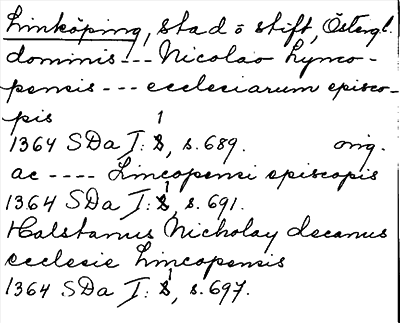 Linköping, stad o stift, Östergl.
dominis --- Nicolao Lynco-
pensis --- ecclesiarum episco-
pis
1364 SDa I: 1, s. 689. orig.
ac ---- Lincopensi episcopis
1364 SDa I: 1, s. 691.
Halstanus Nicholay decanus
ecclesie Lincopensis
1364 SDa I: 1, s. 697.